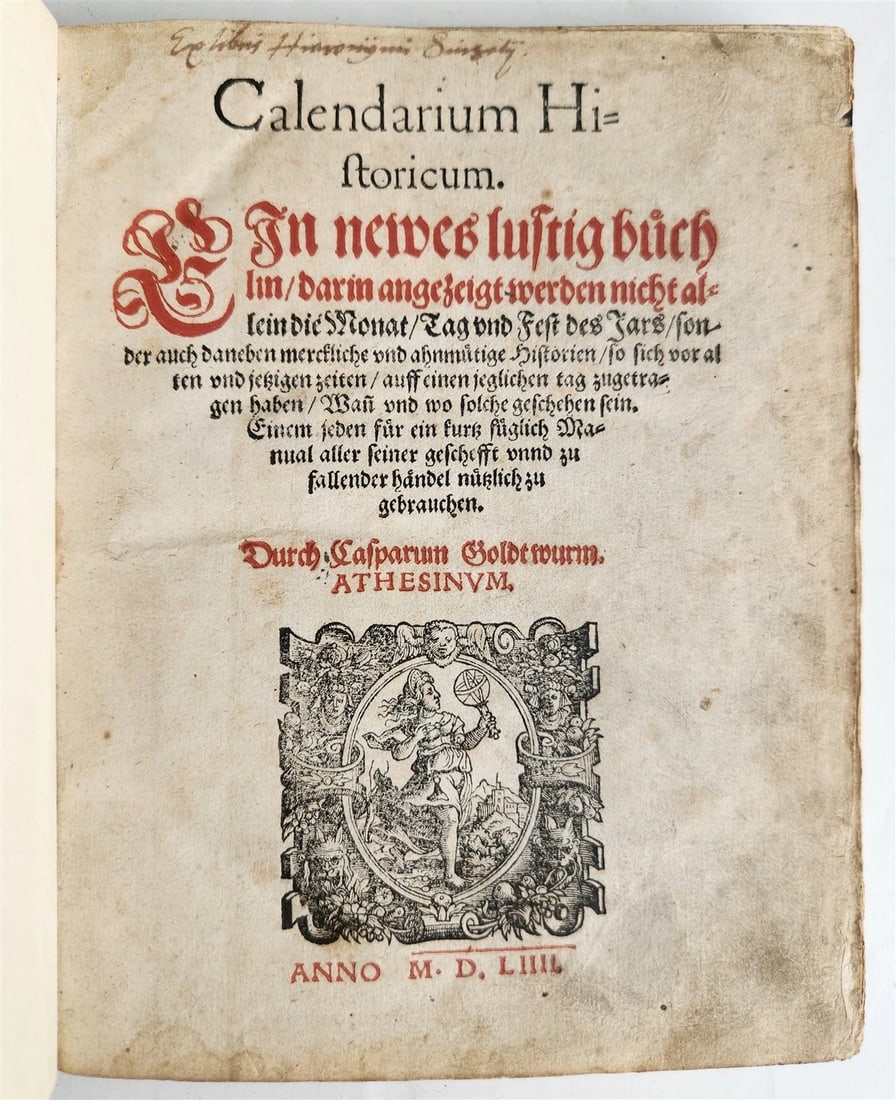 Ex libris Hieronymi
Calendarium Hi=
ſtoricum.
EIn newes luſtig buͤch
lin/ darin angezeigt werden nicht al=
lein die Monat/ Tag vnd Feſt des Jars/ ſon=
der auch daneben merckliche vnd ahnmuͤtige Hiſtorien/ ſo ſich vor al
ten vnd jetzigen zeiten/ auff einen jeglichen tag zugetra=
gen haben/ Wañ vnd wo ſolche geſchehen ſein.
Einem jeden fuͤr ein kurtz fuͤglich Ma=
nual aller ſeiner geſchefft vnnd zu
fallender haͤndel nuͤtzlich zu
gebrauchen.
Durch Caſparum Goldtwurm.
ATHESINVM.
ANNO M. D. LIIII.